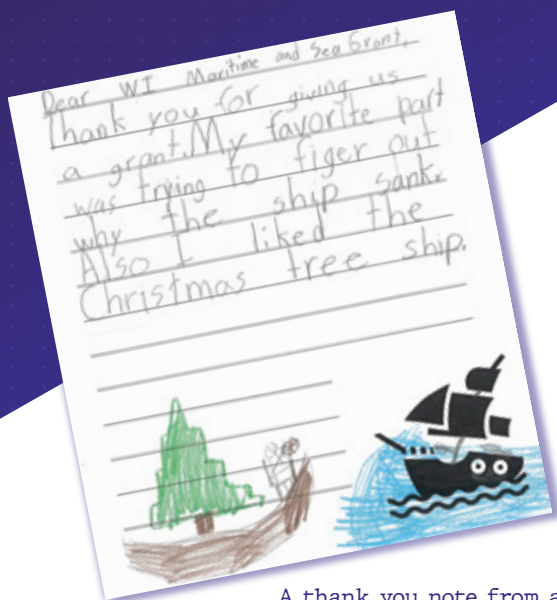 Dear WI Maritime and Sea Grant,
Thank you for giving us
a grant. My favorite part
was trying to figer out
why the ship sank.
Also I liked the
Christmas tree ship.
A thank you note from a